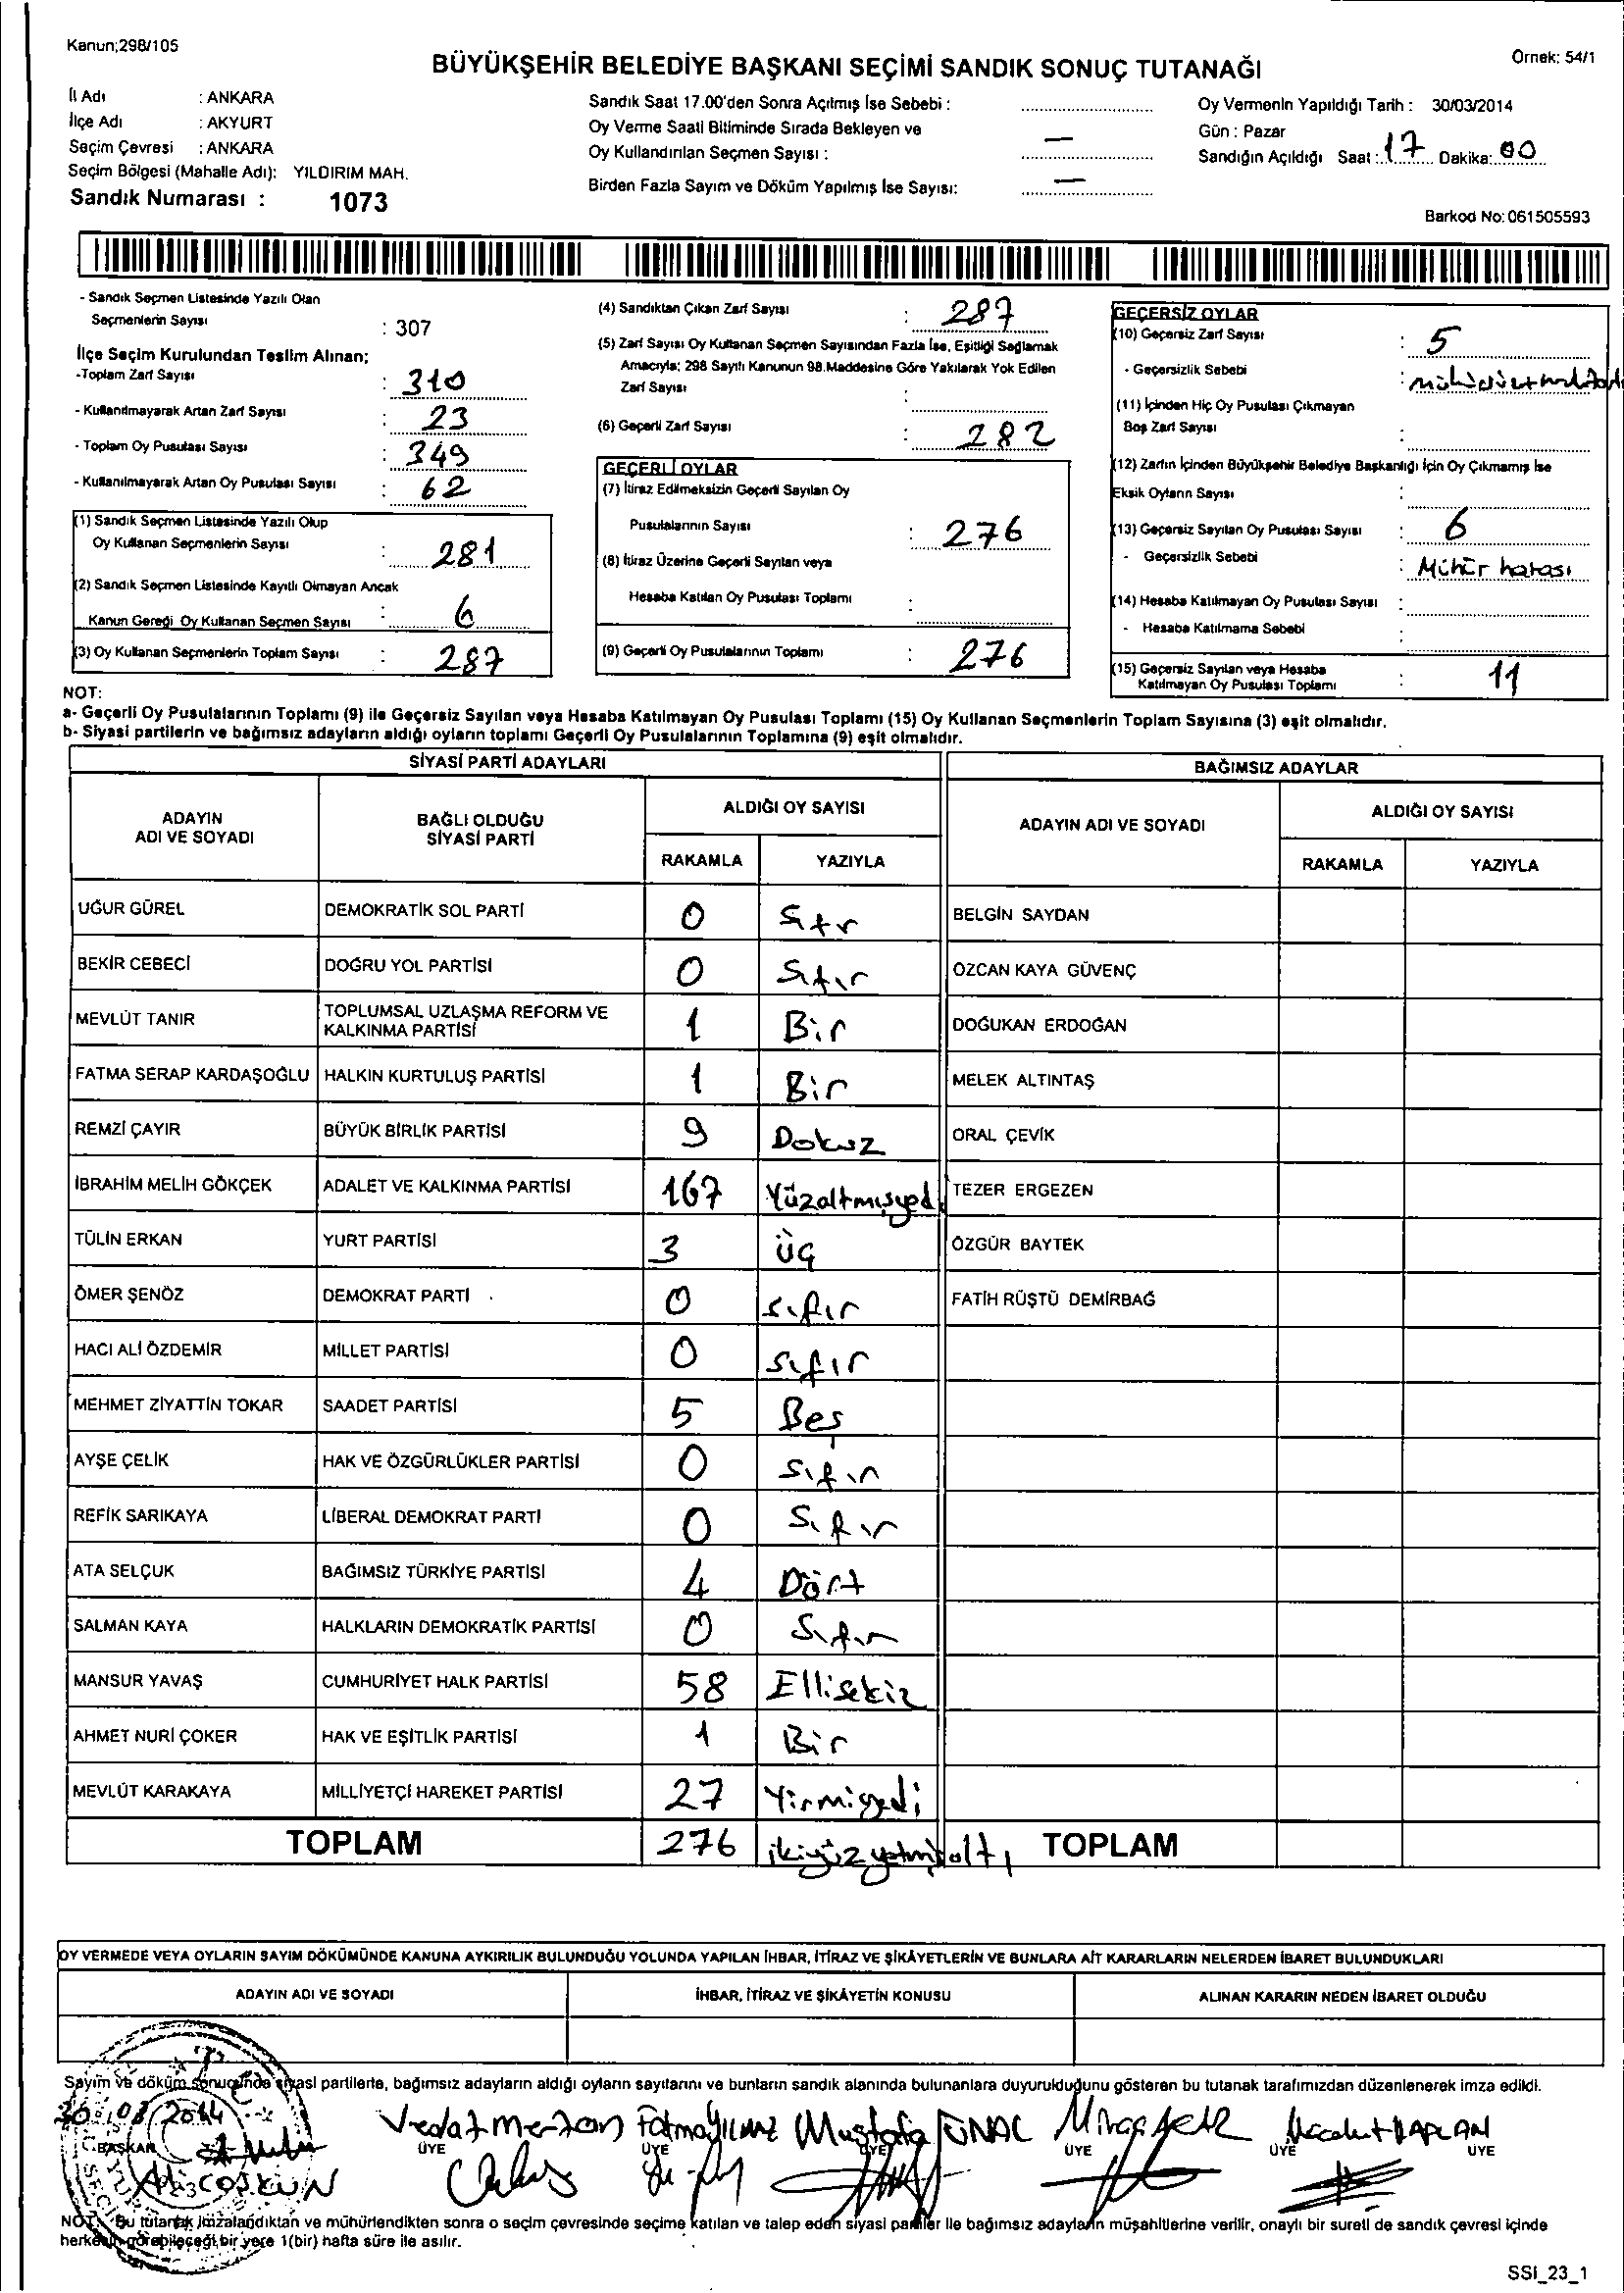 Kanun;298/105
Örnek: 54/1
BÜYÜKŞEHİR BELEDİYE BAŞKANI SEÇİMİ SANDIK SONUÇ TUTANAĞI
İl Adı : ANKARA
İlçe Adı : AKYURT
Seçim Çevresi : ANKARA
Seçim Bölgesi (Mahalle Adı): YILDIRIM MAH.
Sandık Numarası : 1073
Sandık Saat 17.00'den Sonra Açılmış İse Sebebi :
Oy Verme Saati Bitiminde Sırada Bekleyen ve
Oy Kullandırılan Seçmen Sayısı : —
Birden Fazla Sayım ve Döküm Yapılmış İse Sayısı: —
Oy Vermenin Yapıldığı Tarih : 30/03/2014
Gün : Pazar
Sandığın Açıldığı Saat : 17 Dakika: 00
Barkod No: 061505593
- Sandık Seçmen Listesinde Yazılı Olan
Seçmenlerin Sayısı : 307
İlçe Seçim Kurulundan Teslim Alınan;
-Toplam Zarf Sayısı : 310
- Kullanılmayarak Artan Zarf Sayısı : 23
- Toplam Oy Pusulası Sayısı : 349
- Kullanılmayarak Artan Oy Pusulası Sayısı : 62
(1) Sandık Seçmen Listesinde Yazılı Olup
Oy Kullanan Seçmenlerin Sayısı : 281
(2) Sandık Seçmen Listesinde Kayıtlı Olmayan Ancak
Kanun Gereği Oy Kullanan Seçmen Sayısı : 6
(3) Oy Kullanan Seçmenlerin Toplam Sayısı : 287
(4) Sandıktan Çıkan Zarf Sayısı : 287
(5) Zarf Sayısı Oy Kullanan Seçmen Sayısından Fazla İse, Eşitliği Sağlamak
Amacıyla; 298 Sayılı Kanunun 98.Maddesine Göre Yakılarak Yok Edilen
Zarf Sayısı :
(6) Geçerli Zarf Sayısı : 282
GEÇERLİ OYLAR
(7) İtiraz Edilmeksizin Geçerli Sayılan Oy
Pusulalarının Sayısı : 276
(8) İtiraz Üzerine Geçerli Sayılan veya
Hesaba Katılan Oy Pusulası Toplamı :
(9) Geçerli Oy Pusulalarının Toplamı : 276
GEÇERSİZ OYLAR
(10) Geçersiz Zarf Sayısı : 5
- Geçersizlik Sebebi :
(11) İçinden Hiç Oy Pusulası Çıkmayan
Boş Zarf Sayısı :
(12) Zarfın İçinden Büyükşehir Belediye Başkanlığı İçin Oy Çıkmamış İse
Eksik Oyların Sayısı :
(13) Geçersiz Sayılan Oy Pusulası Sayısı : 6
- Geçersizlik Sebebi : Mühür hatası
(14) Hesaba Katılmayan Oy Pusulası Sayısı :
- Hesaba Katılmama Sebebi :
(15) Geçersiz Sayılan veya Hesaba
Katılmayan Oy Pusulası Toplamı : 11
NOT:
a- Geçerli Oy Pusulalarının Toplamı (9) ile Geçersiz Sayılan veya Hesaba Katılmayan Oy Pusulası Toplamı (15) Oy Kullanan Seçmenlerin Toplam Sayısına (3) eşit olmalıdır.
b- Siyasi partilerin ve bağımsız adayların aldığı oyların toplamı Geçerli Oy Pusulalarının Toplamına (9) eşit olmalıdır.
SİYASİ PARTİ ADAYLARI
BAĞIMSIZ ADAYLAR
ADAYIN ADI VE SOYADI
BAĞLI OLDUĞU SİYASİ PARTİ
ALDIĞI OY SAYISI
RAKAMLA YAZIYLA
ADAYIN ADI VE SOYADI
ALDIĞI OY SAYISI
RAKAMLA YAZIYLA
UĞUR GÜREL DEMOKRATİK SOL PARTİ 0 Sıfır BELGİN SAYDAN
BEKİR CEBECİ DOĞRU YOL PARTİSİ 0 Sıfır ÖZCAN KAYA GÜVENÇ
MEVLÜT TANIR TOPLUMSAL UZLAŞMA REFORM VE KALKINMA PARTİSİ 1 Bir DOĞUKAN ERDOĞAN
FATMA SERAP KARDAŞOĞLU HALKIN KURTULUŞ PARTİSİ 1 Bir MELEK ALTINTAŞ
REMZİ ÇAYIR BÜYÜK BİRLİK PARTİSİ 9 Dokuz ORAL ÇEVİK
İBRAHİM MELİH GÖKÇEK ADALET VE KALKINMA PARTİSİ 167 Yüzaltmışyedi TEZER ERGEZEN
TÜLİN ERKAN YURT PARTİSİ 3 Üç ÖZGÜR BAYTEK
ÖMER ŞENÖZ DEMOKRAT PARTİ 0 Sıfır FATİH RÜŞTÜ DEMİRBAĞ
HACI ALİ ÖZDEMİR MİLLET PARTİSİ 0 sıfır
MEHMET ZİYATTİN TOKAR SAADET PARTİSİ 5 Beş
AYŞE ÇELİK HAK VE ÖZGÜRLÜKLER PARTİSİ 0 Sıfır
REFİK SARIKAYA LİBERAL DEMOKRAT PARTİ 0 Sıfır
ATA SELÇUK BAĞIMSIZ TÜRKİYE PARTİSİ 4 Dört
SALMAN KAYA HALKLARIN DEMOKRATİK PARTİSİ 0 Sıfır
MANSUR YAVAŞ CUMHURİYET HALK PARTİSİ 58 Ellisekiz
AHMET NURİ ÇOKER HAK VE EŞİTLİK PARTİSİ 1 Bir
MEVLÜT KARAKAYA MİLLİYETÇİ HAREKET PARTİSİ 27 Yirmiyedi
TOPLAM 276 ikiyüzyetmişaltı TOPLAM
OY VERMEDE VEYA OYLARIN SAYIM DÖKÜMÜNDE KANUNA AYKIRILIK BULUNDUĞU YOLUNDA YAPILAN İHBAR, İTİRAZ VE ŞİKÂYETLERİN VE BUNLARA AİT KARARLARIN NELERDEN İBARET BULUNDUKLARI
ADAYIN ADI VE SOYADI İHBAR, İTİRAZ VE ŞİKÂYETİN KONUSU ALINAN KARARIN NEDEN İBARET OLDUĞU
Sayım ve döküm sonucunda siyasi partilerle, bağımsız adayların aldığı oyların sayılarını ve bunların sandık alanında bulunanlara duyurulduğunu gösteren bu tutanak tarafımızdan düzenlenerek imza edildi.
30.03.2014 Vedat Fatma YILMAZ Mustafa ÜNAL KAPLAN
BAŞKAN ÜYE ÜYE ÜYE ÜYE ÜYE ÜYE
Ali COŞKUN
NOT: Bu tutanak imzalandıktan ve mühürlendikten sonra o seçim çevresinde seçime katılan ve talep eden siyasi partiler ile bağımsız adayların müşahitlerine verilir, onaylı bir sureti de sandık çevresi içinde
herkesin görebileceği bir yere 1(bir) hafta süre ile asılır.
SSİ_23_1